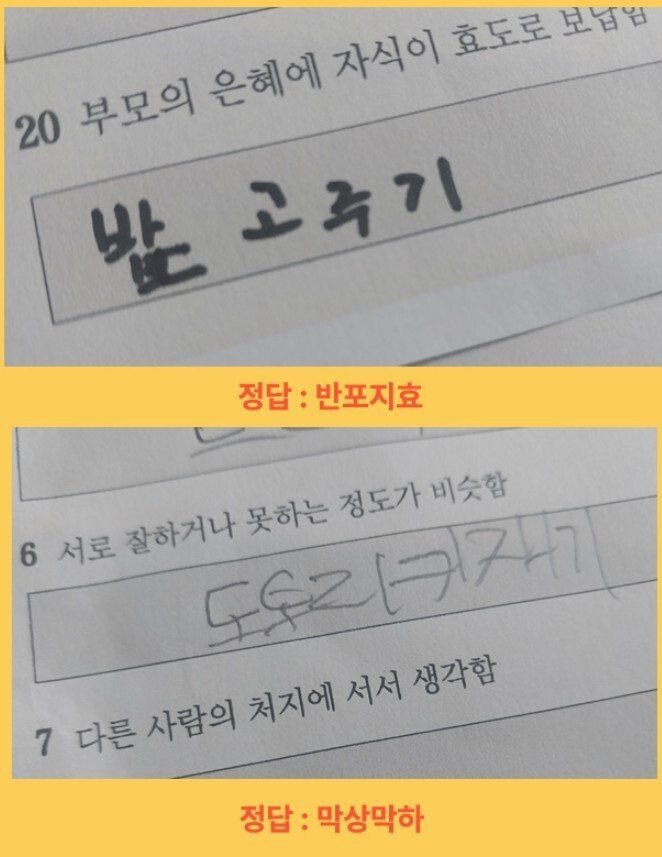 20 부모의 은혜에 자식이 효도로 보답함
밭 고루기
정답 : 반포지효
6 서로 잘하거나 못하는 정도가 비슷함
도토리키재기
7 다른 사람의 처지에 서서 생각함
정답 : 막상막하